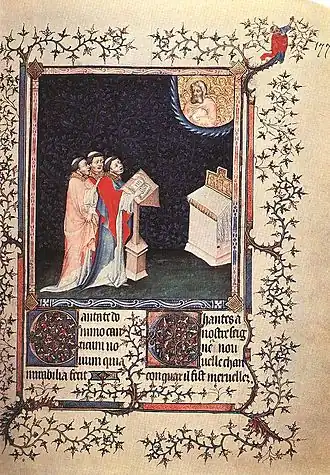 177
antate do
mino can
ticum no
uum quia
mirabilia fecit
hantes a
nostre seig
ne nou
uelle chan
con quar il fist merueilles